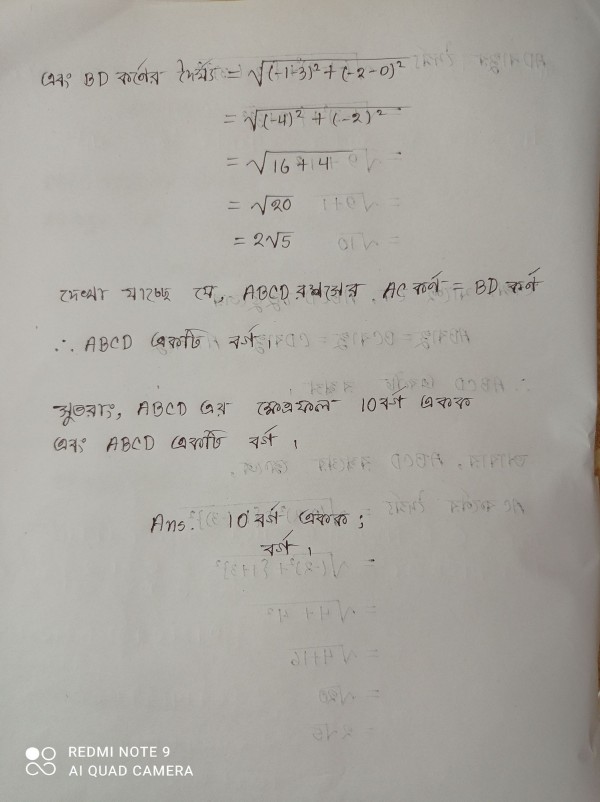 এবং BD কর্ণের দৈর্ঘ্য = √(-1-3)² + (-2-0)²
= √(-4)² + (-2)²
= √16+4
= √20
= 2√5
দেখা যাচ্ছে যে, ABCD রম্বসের AC কর্ণ = BD কর্ণ
∴ ABCD একটি বর্গ।
সুতরাং, ABCD এর ক্ষেত্রফল 10 বর্গ একক
এবং ABCD একটি বর্গ।
Ans: 10 বর্গ একক;
বর্গ।
REDMI NOTE 9
AI QUAD CAMERA